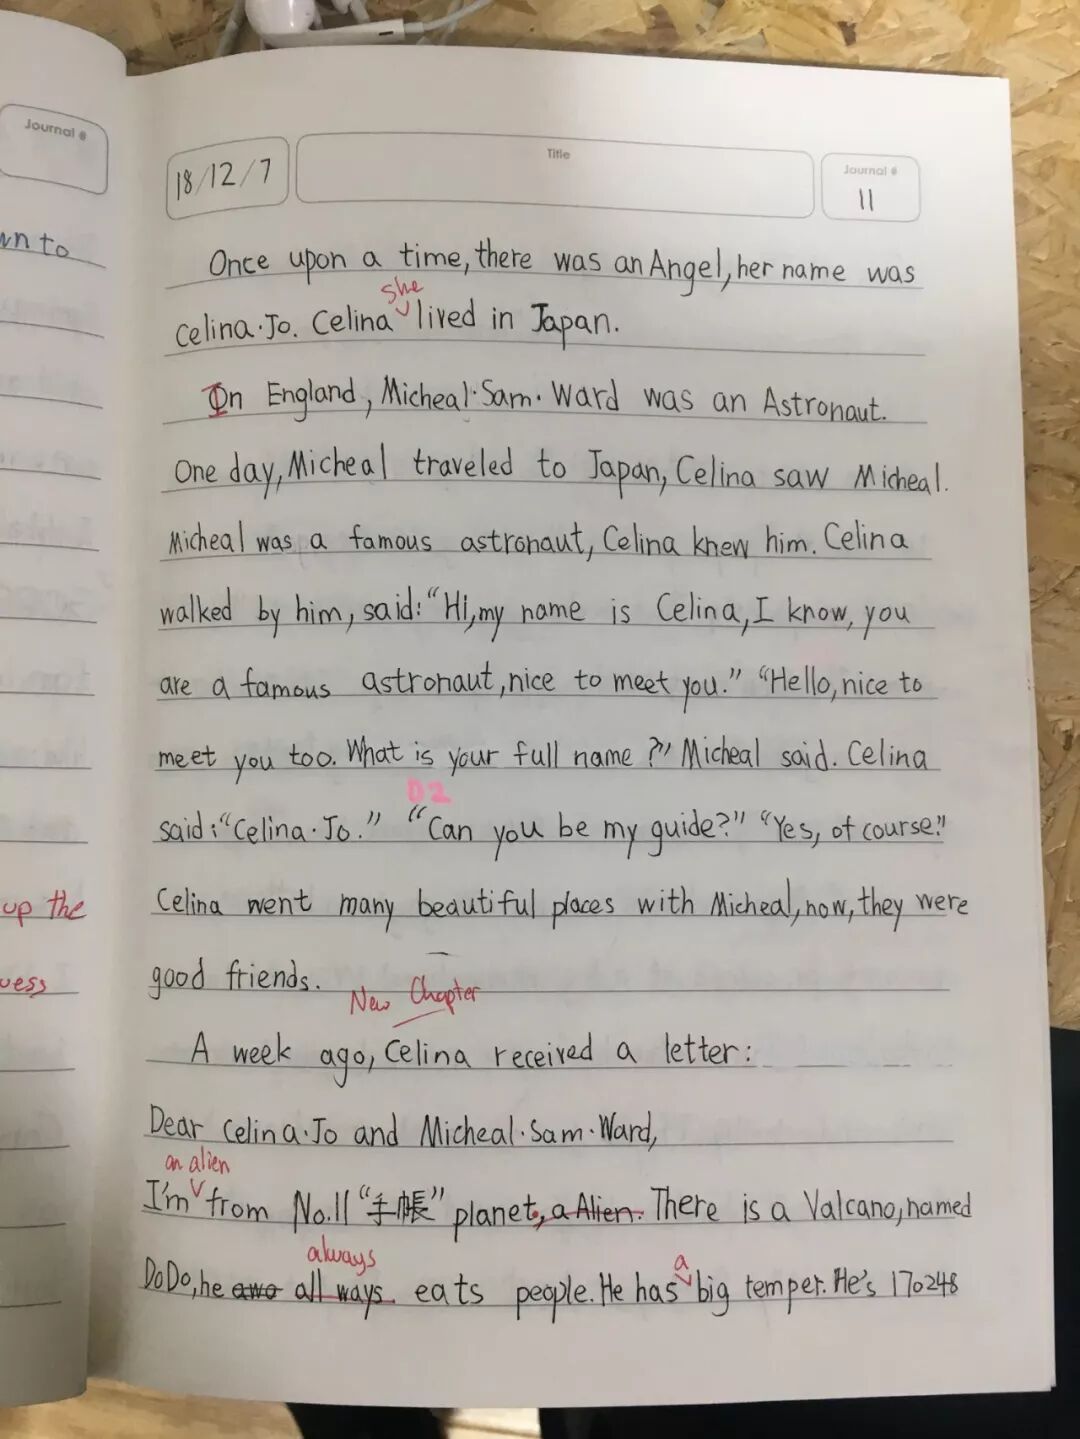 Journal #
wn to
up the
uess
18/12/7
Title
Journal #
11
Once upon a time, there was an Angel, her name was
she
Celina·Jo. Celina lived in Japan.
In England, Micheal·Sam·Ward was an Astronaut.
One day, Micheal traveled to Japan, Celina saw Micheal.
Micheal was a famous astronaut, Celina knew him. Celina
walked by him, said: "Hi, my name is Celina, I know, you
are a famous astronaut, nice to meet you." "Hello, nice to
meet you too. What is your full name?" Micheal said. Celina
02
said: "Celina·Jo." "Can you be my guide?" "Yes, of course."
Celina went many beautiful places with Micheal, now, they were
good friends.
New Chapter
A week ago, Celina received a letter:
Dear Celina·Jo and Micheal·Sam·Ward,
an alien
I'm from No.11 "手帳" planet, a Alien. There is a Valcano, named
always a
DoDo, he awo all ways eats people. He has big temper. He's 170248